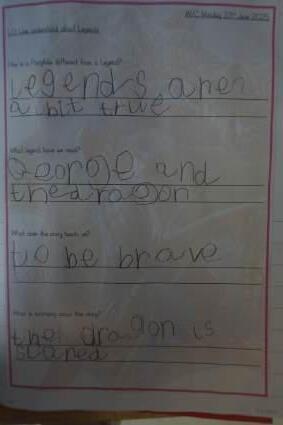 W/C Monday 23rd June 2025
L.O: I can understand about Legends
How is a Fairytale different from a Legend?
Legends are
a bit true
What legend have we read?
George and
the dragon
What does the story teach us?
to be brave
What is
the dragon is